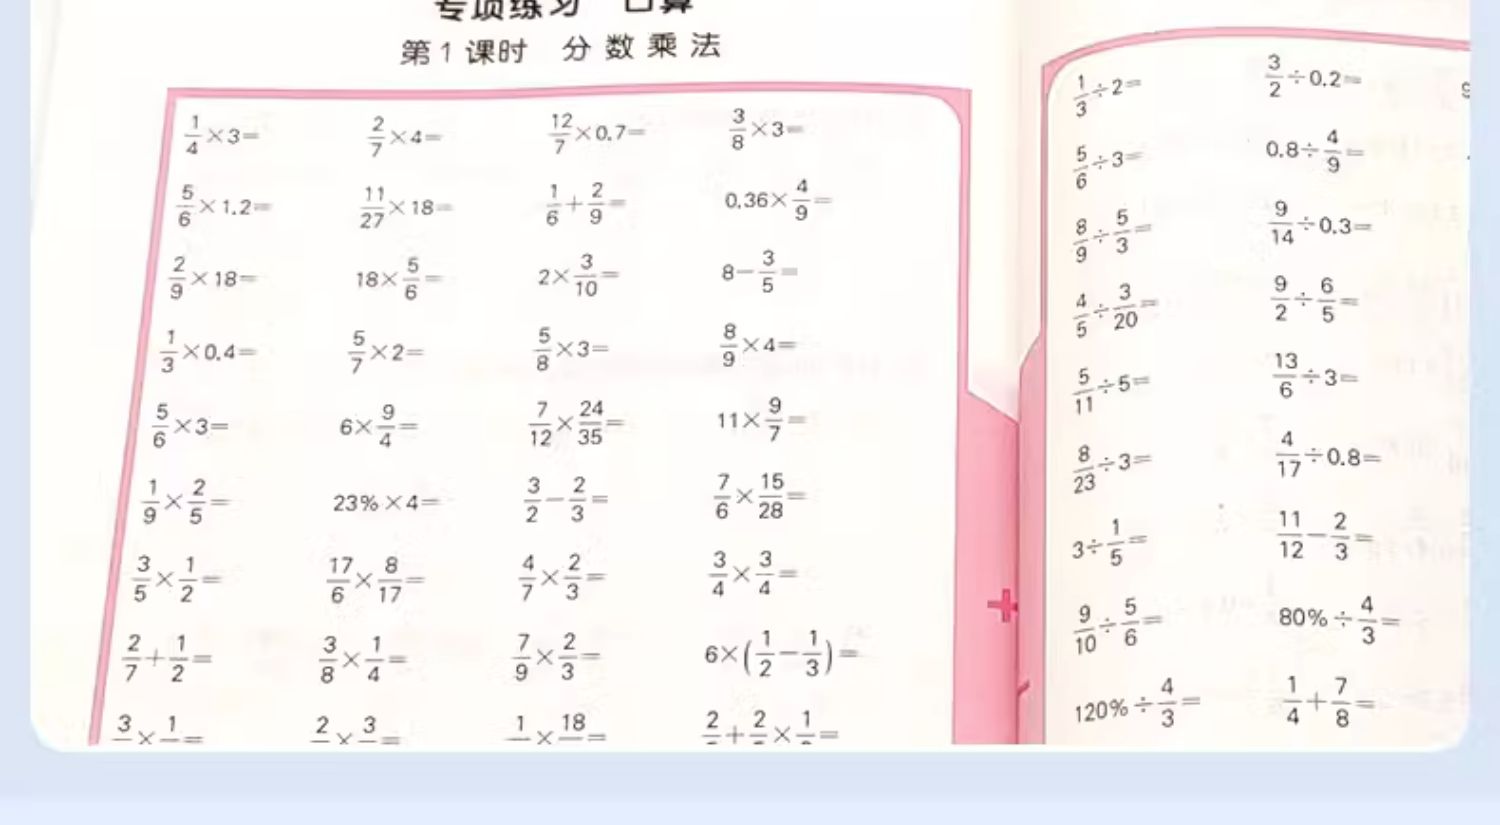 专项练习 口算
第1课时 分数乘法
1/4×3= 2/7×4= 12/7×0.7= 3/8×3=
5/6×1.2= 11/27×18= 1/6+2/9= 0.36×4/9=
2/9×18= 18×5/6= 2×3/10= 8-3/5=
1/3×0.4= 5/7×2= 5/8×3= 8/9×4=
5/6×3= 6×9/4= 7/12×24/35= 11×9/7=
1/9×2/5= 23%×4= 3/2-2/3= 7/6×15/28=
3/5×1/2= 17/6×8/17= 4/7×2/3= 3/4×3/4=
2/7+1/2= 3/8×1/4= 7/9×2/3= 6×(1/2-1/3)=
1/3÷2= 3/2÷0.2=
5/6÷3= 0.8÷4/9=
8/9÷5/3= 9/14÷0.3=
4/5÷3/20= 9/2÷6/5=
5/11÷5= 13/6÷3=
8/23÷3= 4/17÷0.8=
3÷1/5= 11/12-2/3=
9/10÷5/6= 80%÷4/3=
120%÷4/3= 1/4+7/8=